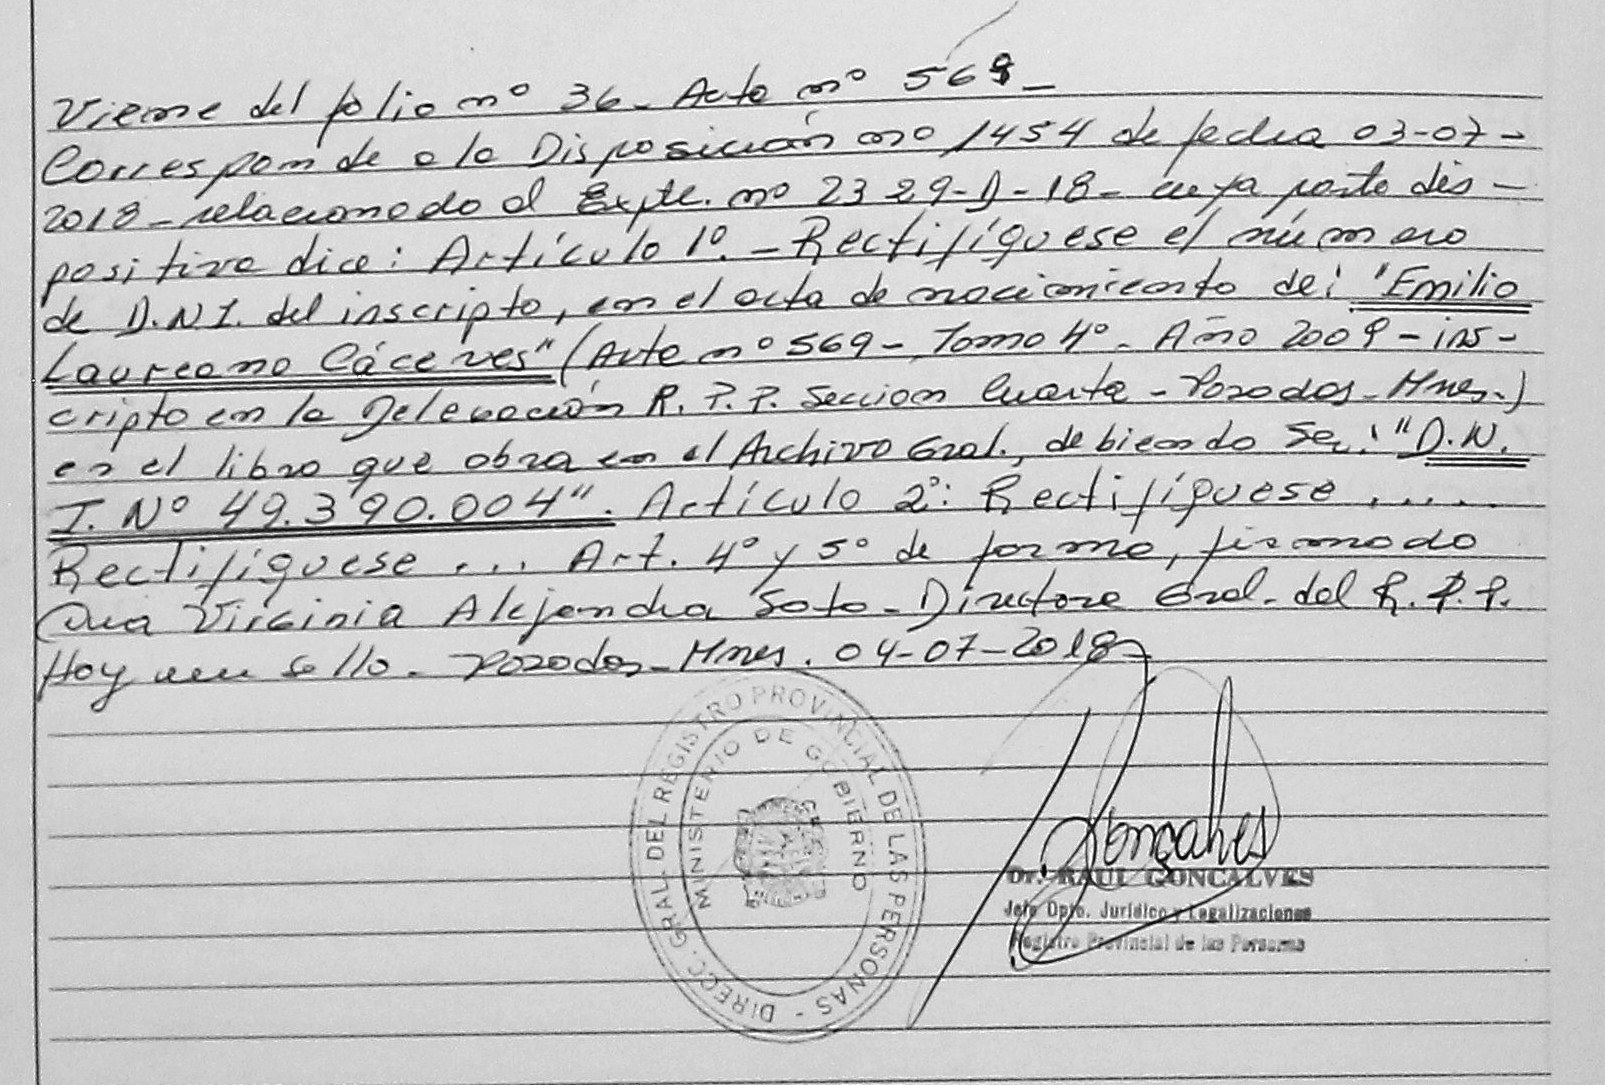 Viene del folio nº 36 - Acta nº 569 -
Corresponde a la Disposición nº 1454 de fecha 03-07-
2018 - relacionado al Expte. nº 2329-D-18 - cuya parte dis-
positiva dice: Artículo 1º. - Rectifíquese el número
de D.N.I. del inscripto, en el acta de nacimiento de: "Emilio
Laureano Cáceres" (Acta nº 569 - Tomo 4º - Año 2009 - ins-
cripto en la Delegación R.P.P. Seccion Cuarta - Posadas - Mnes.)
en el libro que obra en el Archivo Gral., debiendo Ser: "D.N.
I. Nº 49.390.004". Artículo 2º: Rectifíquese ....
Rectifíquese ... Art. 4º y 5º de forma, firmado
Virginia Alejandra Soto - Directora Gral. del R.P.P.
Hay un sello - Posadas - Mnes. 04-07-2018
DIRECC. GRAL. DEL REGISTRO PROVINCIAL DE LAS PERSONAS -
MINISTERIO DE GOBIERNO
Goncalves
Dr. RAUL GONCALVES
Jefe Dpto. Jurídico y Legalizaciones
Registro Provincial de las Personas